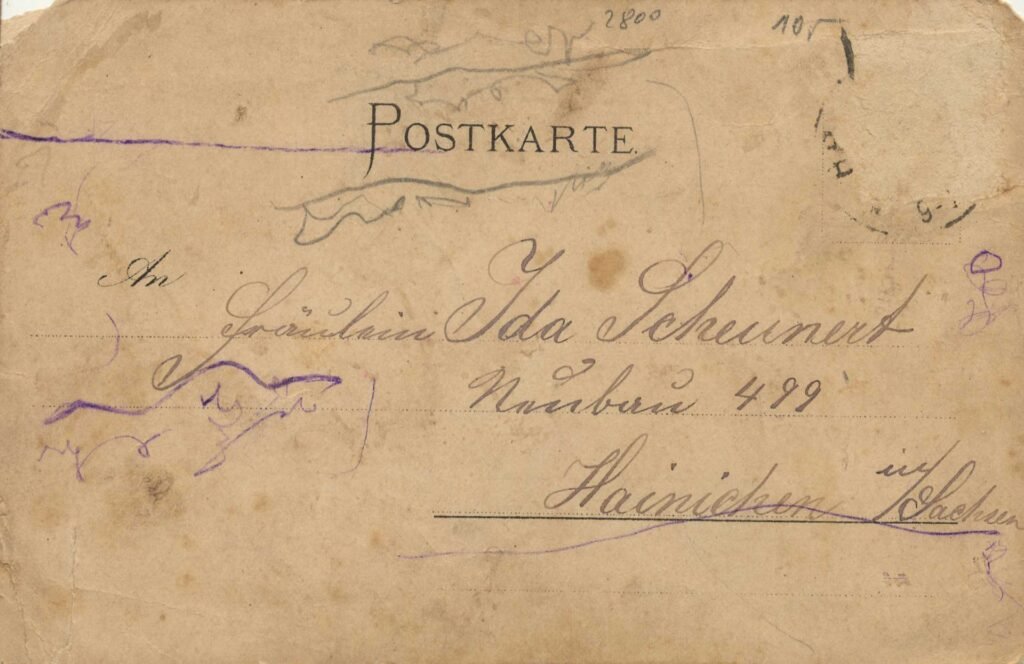 2800
105
POSTKARTE.
An
Fräulein Ida Scheunert
Neubau 499
Hainichen
in/Sachsen